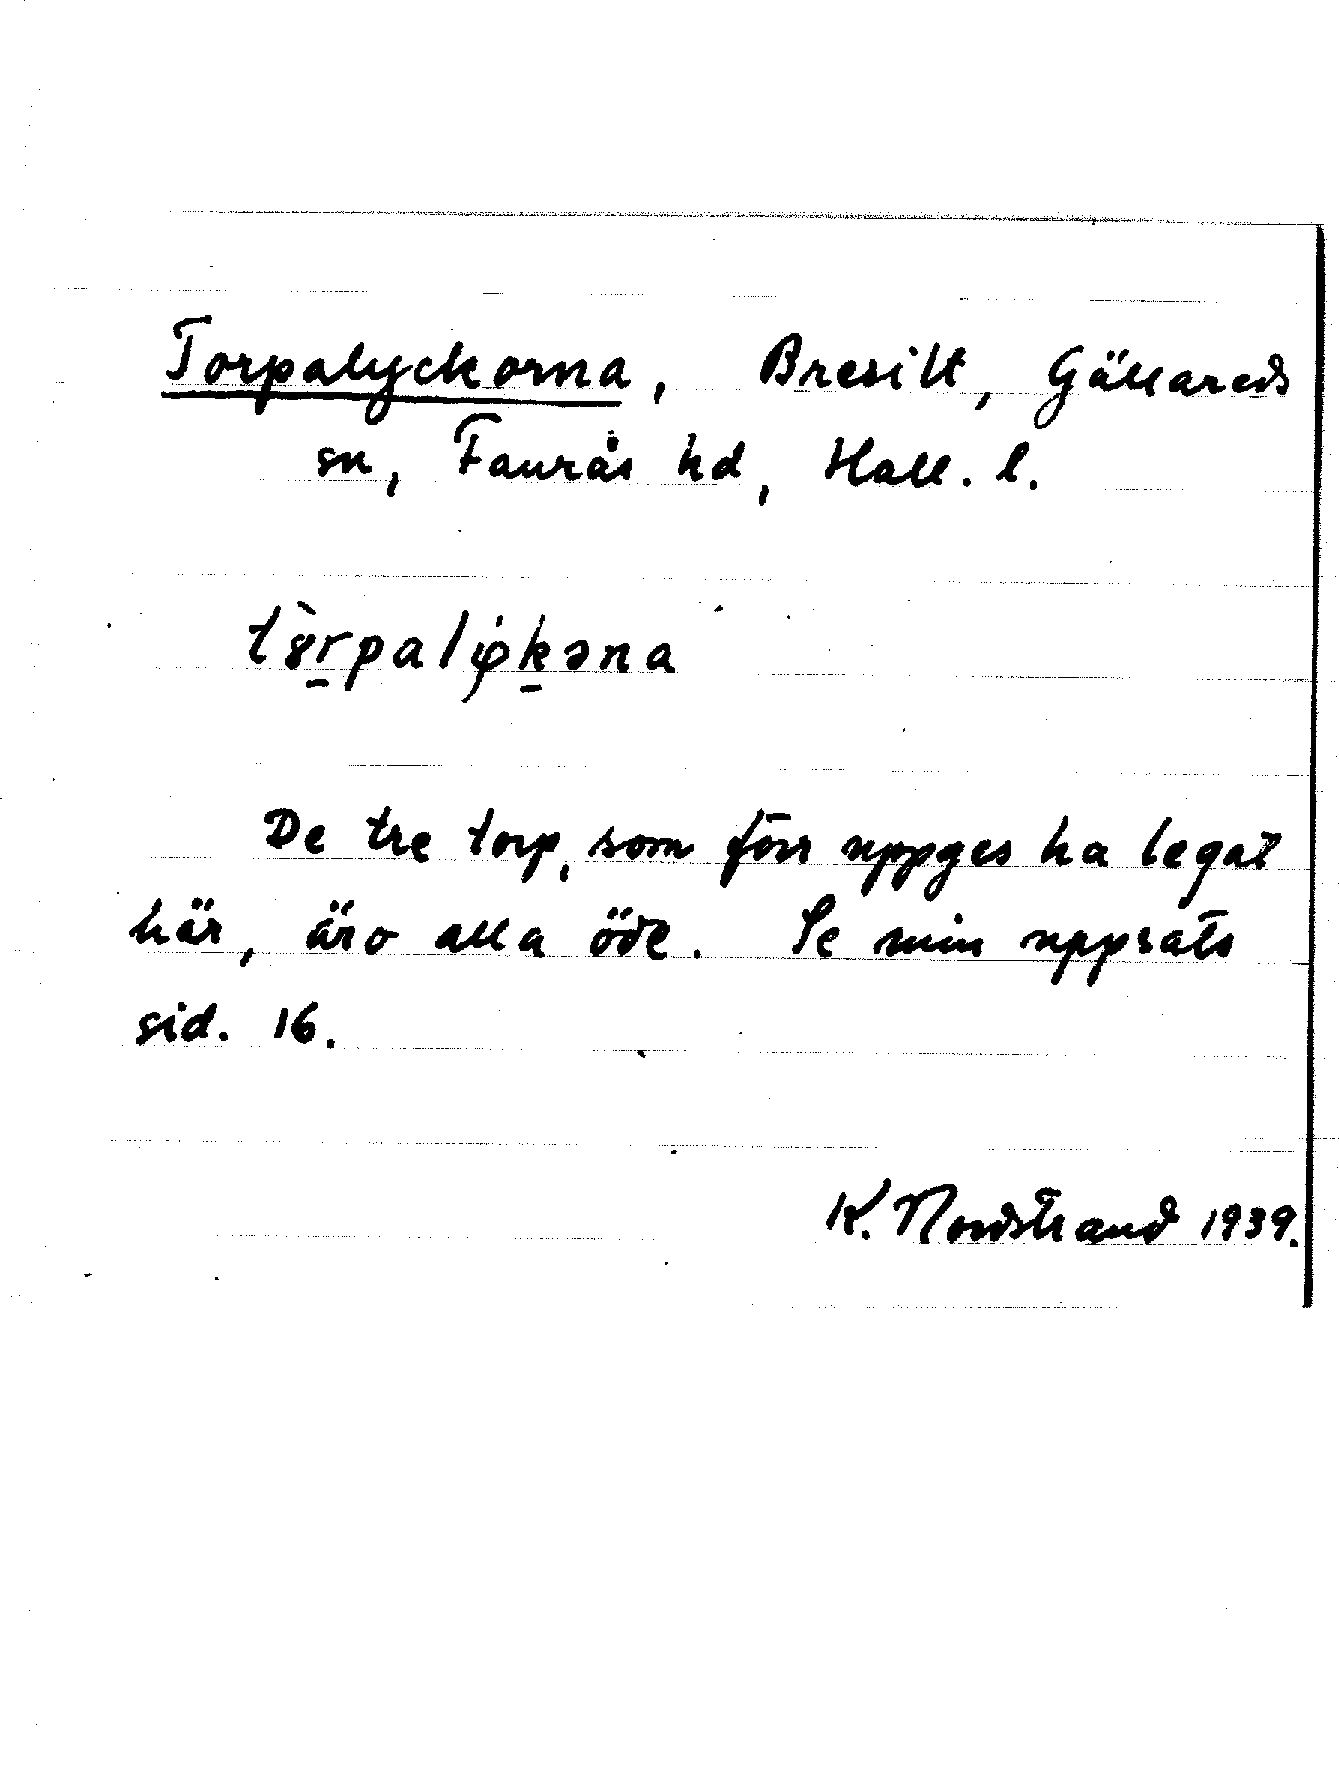 Torpalyckorna, Bresilt, Gällareds
sn, Faurås hd, Hall. l.
tȣ̀r̠palφ̇k̠əna
De tre torp, som förr uppges ha legat
här, äro alla öde. Se min uppsats
sid. 16.
K. Nordstrand 1939.